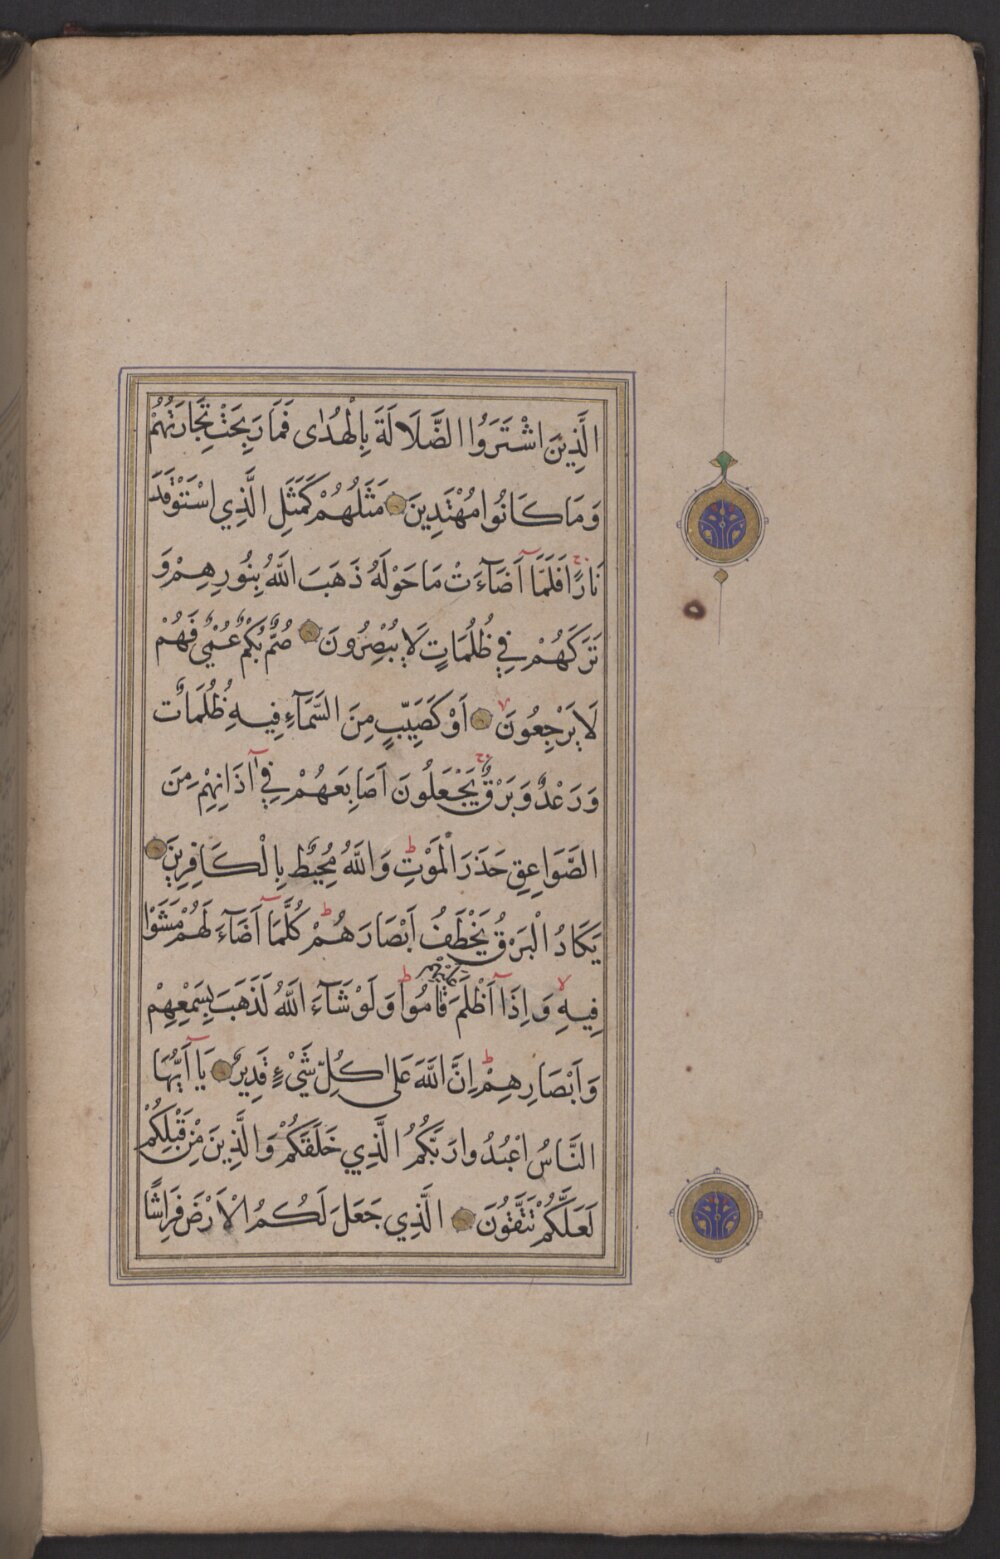 الَّذِينَ اشْتَرَوُا الضَّلَالَةَ بِالْهُدٰى فَمَا رَبِحَتْ تِجَارَتُهُمْ
وَمَا كَانُوا مُهْتَدِينَ مَثَلُهُمْ كَمَثَلِ الَّذِي اسْتَوْقَدَ
نَارًا فَلَمَّآ اَضَآءَتْ مَا حَوْلَهُ ذَهَبَ اللّٰهُ بِنُورِهِمْ وَ
تَرَكَهُمْ فِي ظُلُمَاتٍ لَا يُبْصِرُونَ صُمٌّ بُكْمٌ عُمْيٌ فَهُمْ
لَا يَرْجِعُونَ اَوْ كَصَيِّبٍ مِنَ السَّمَآءِ فِيهِ ظُلُمَاتٌ
وَرَعْدٌ وَبَرْقٌ يَجْعَلُونَ اَصَابِعَهُمْ فِيٓ اٰذَانِهِمْ مِنَ
الصَّوَاعِقِ حَذَرَ الْمَوْتِ ط وَاللّٰهُ مُحِيطٌ بِالْكَافِرِينَ
يَكَادُ الْبَرْقُ يَخْطَفُ اَبْصَارَهُمْ ط كُلَّمَآ اَضَآءَ لَهُمْ مَشَوْا
فِيهِ لا وَاِذَآ اَظْلَمَ عَلَيْهِمْ قَامُوا ط وَلَوْ شَآءَ اللّٰهُ لَذَهَبَ بِسَمْعِهِمْ
وَاَبْصَارِهِمْ ط اِنَّ اللّٰهَ عَلٰى كُلِّ شَيْءٍ قَدِيرٌ يَآ اَيُّهَا
النَّاسُ اعْبُدُوا رَبَّكُمُ الَّذِي خَلَقَكُمْ وَالَّذِينَ مِنْ قَبْلِكُمْ
لَعَلَّكُمْ تَتَّقُونَ الَّذِي جَعَلَ لَكُمُ الْاَرْضَ فِرَاشًا